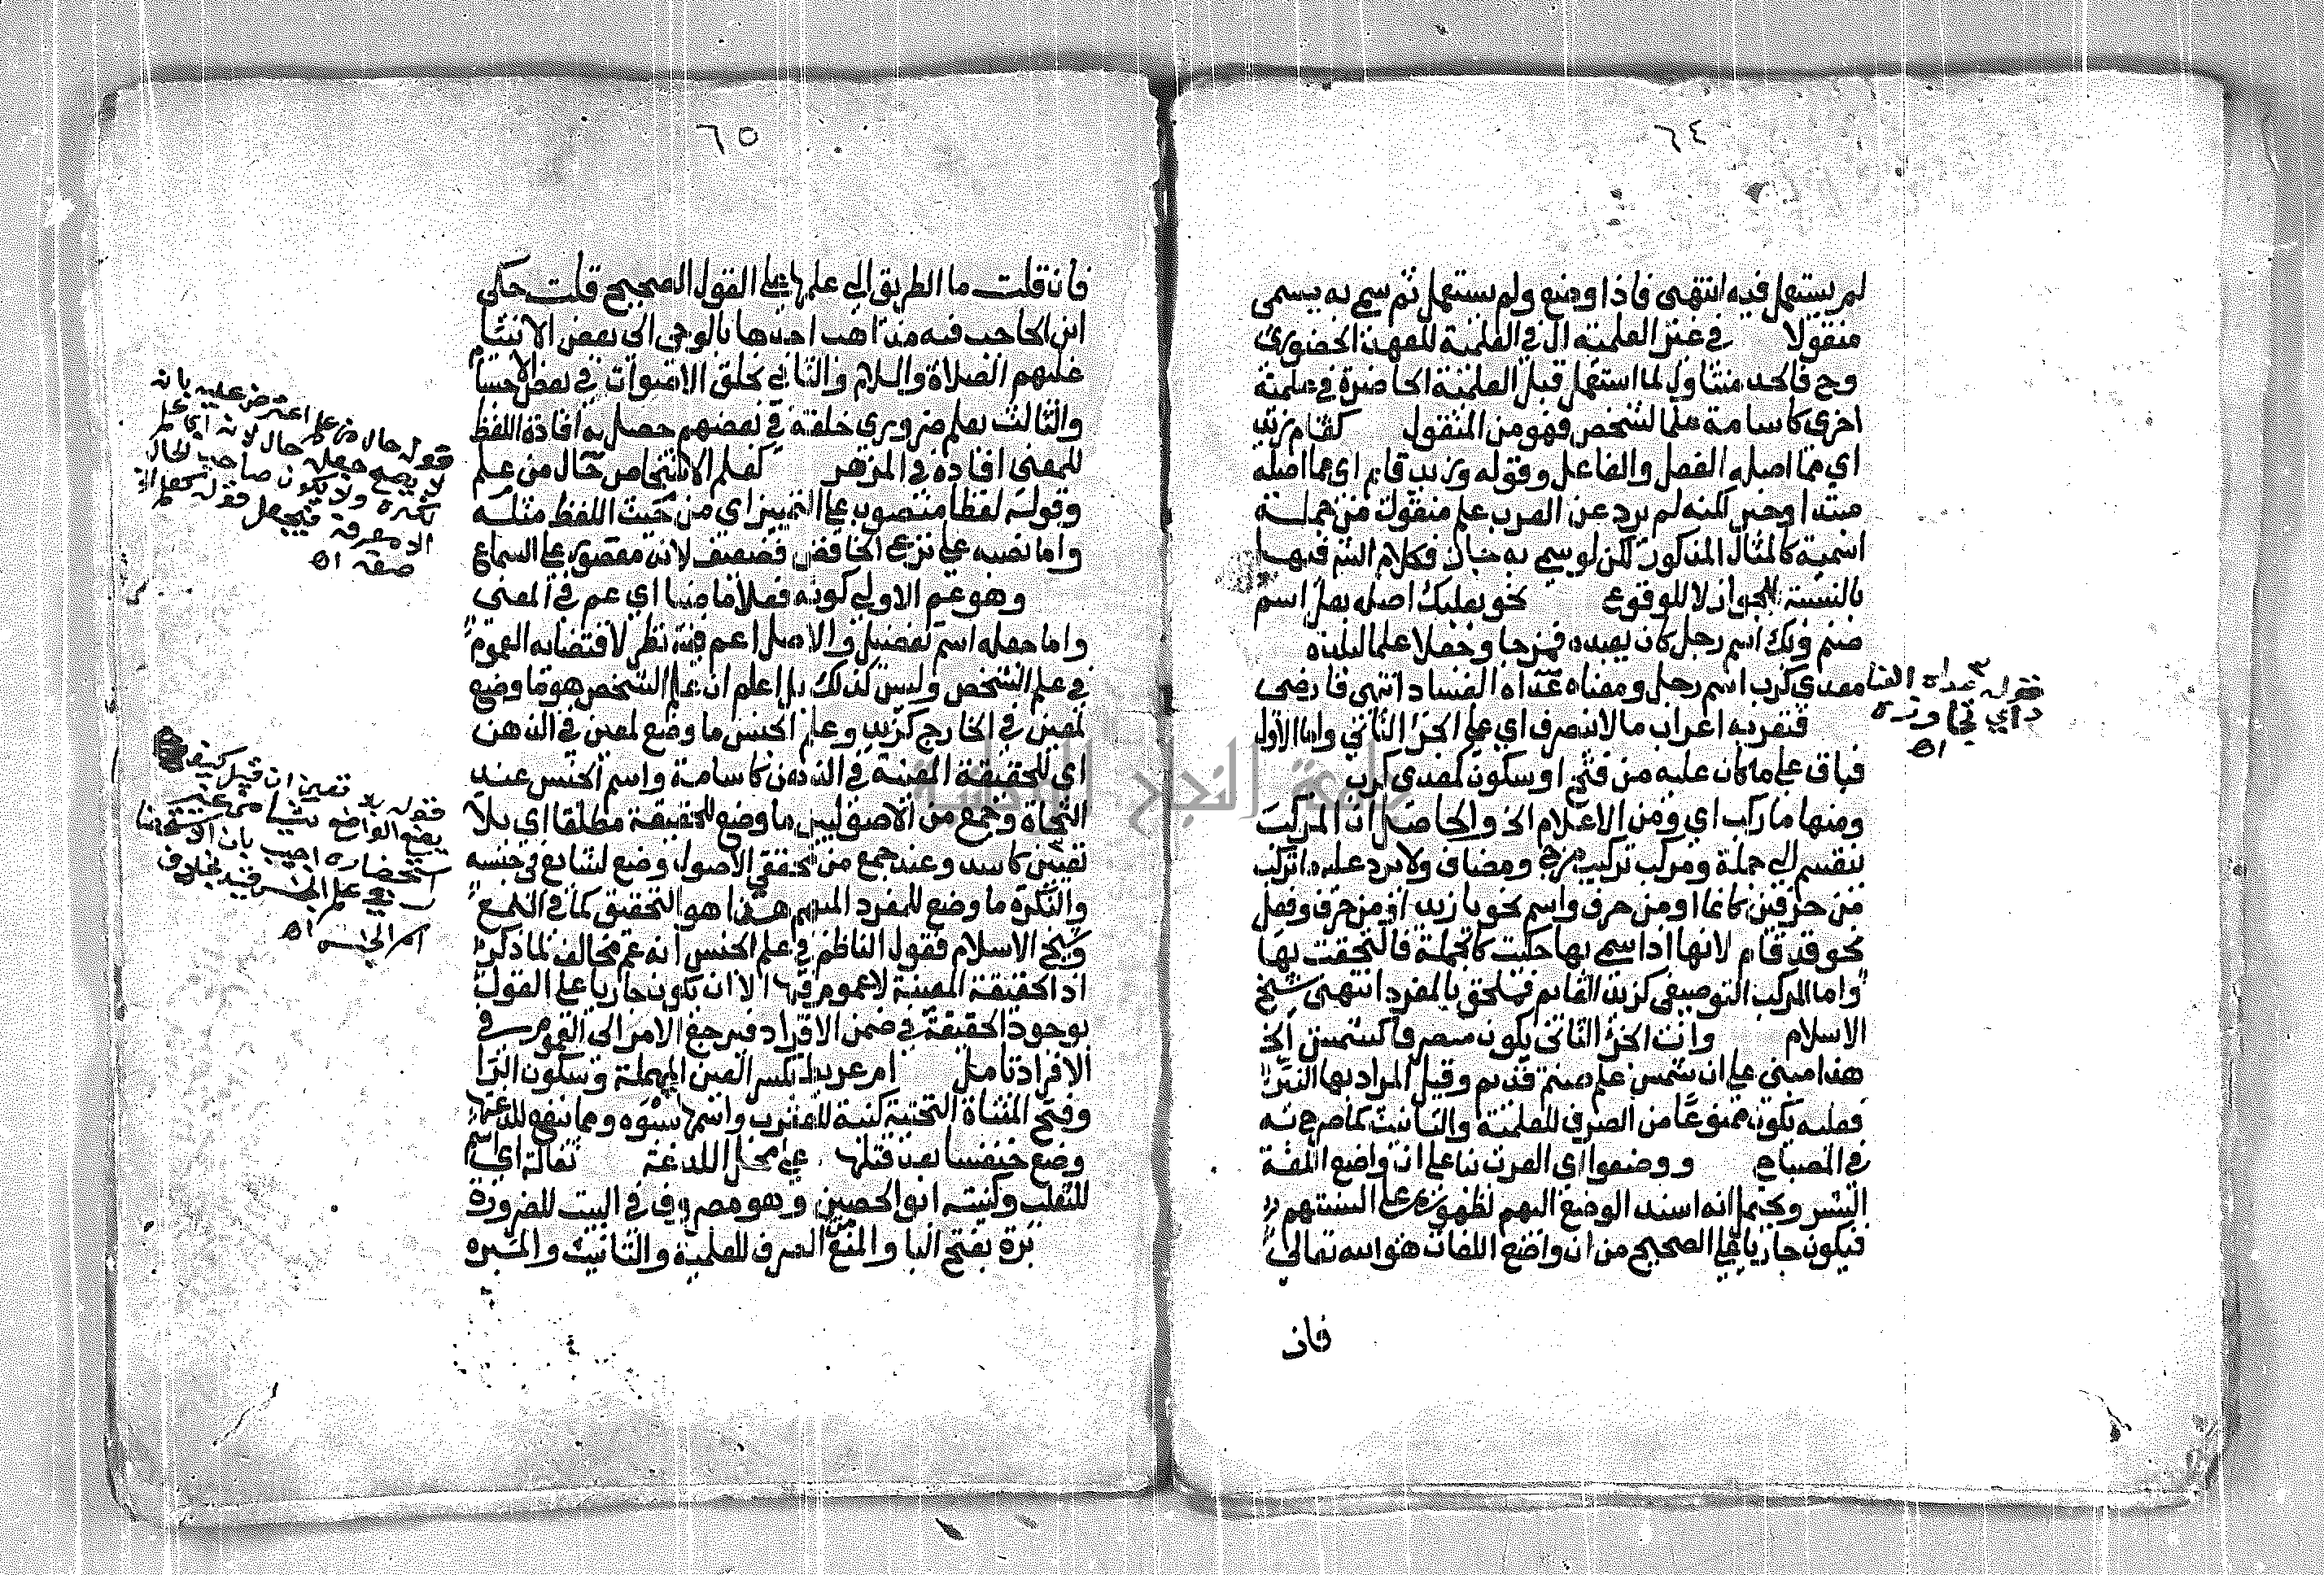 ٦٤
لم يستعمل فيه انتهى فاذا وضع ولم يستعمل ثم سمي به يسمى
منقولا في غير العلمية ال في العلمية للعهد الحضوري
وح فالحد متناول لما استعمل قبل العلمية الحاضرة في علمية
اخرى كاسامة علما لشخص فهو من المنقول كقام زيد
اي مما اصله الفعل والفاعل وقوله وزيد قايم اي مما اصله
مبتدا وخبر لكنه لم يرد عن العرب علم منقول من جملة
اسمية كالمثال المذكور لكن لو سمي به جاز فكلام الش فيها
بالنسبة للجواز لا للوقوع نحو بعلبك اصله بعل اسم
صنم وبك اسم رجل كان يعبده فمزجا وجعلا علما لبلده
معدي كرب اسم رجل ومعناه عداه الفساد انتهى فارضى
فتعربه اعراب ما لا ينصرف اي على الجزا الثاني واما الاول
فباق على ما كان عليه من فتح او سكون كمعدي كرب
ومنها ما ركب اي ومن الاعلام الخ والحاصل ان المركب
ينقسم الى جملة ومركب تركيب مزج ومضاف ولا يرد عليه ما تركب
من حرفين كانما او من حرف واسم نحو يا زيد او من حرف وفعل
نحو قد قام لانها اذا سمي بها حكيت كالجملة فالتحقت بها
واما المركب التوصيفي كزيد القايم فملحق بالمفرد انتهى شيخ
الاسلام وانت الجزا الثاني يكون منصرفا كشمس الخ
هذا مبني على ان شمس علم صنم قديم وقيل المراد بها النير
فعليه يكون ممنوعا من الصرف للعلمية والتانيث كما صرح به
في المصباح ووضعوا اي العرب بنا على ان واضع اللغة
البشر ويحتمل انه اسند الوضع اليهم لظهوره على السنتهم
فيكون جاريا على الصحيح من ان واضع اللغات هو الله تعالى
فان
قوله عداه الفسا
د اي تجاوزه
اه
٦٥
فان قلت ما الطريق الى علمها على القول الصحيح قلت حكى
ابن الحاجب فيه مذاهب احدها بالوحي الى بعض الانبيا
عليهم الصلاة والسلام والثاني بخلق الاصوات في بعض الاجسام
والثالث بعلم ضروري خلقه في بعضهم حصل به افادة اللفظ
للمعنى افاده في المزهر كعلم الاشخاص حال من علم
وقوله لفظا منصوب على التمييز اي من حيث اللفظ مثله
واما نصبه على نزع الخافض فضعيف لانه مقصور على السماع
وهو عم الاولى كونه فعلا ماضيا اي عم في المعنى
واما جعله اسم تفضيل والاصل اعم ففيه نظر لاقتضايه العموم
في علم الشخص وليس كذلك بل اعلم ان علم الشخص هو ما وضع
لمعين في الخارج كزيد وعلم الجنس ما وضع لمعين في الذهن
اي للحقيقة المعينة في الذهن كاسامة واسم الجنس عند
النحاة وجمع من الاصوليين ما وضع للحقيقة مطلقا اي بلا
تعيين كاسد وعند جمع من محققي الاصول وضع لشايع في جنسه
والنكرة ما وضع للمفرد المبهم هذا هو التحقيق كما في الجمع
وشيخ الاسلام فقول الناظم في علم الجنس انه عم مخالف لما ذكر
اذ الحقيقة المعينة لا عموم فيها الا ان يكون جاريا على القول
بوجود الحقيقة في ضمن الافراد فيرجع الامر الى العموم في
الافراد تامل ام عريط بكسر العين المهملة وسكون الرا
وفتح المثناة التحتية كنية للعقرب واسمها شبوه ومما ينفع للدغتها
وضع خنفسا بعد قتلها على محل اللدغة ثعالة اي اسم
للثعلب وكنيته ابو الحصين وهو مصروف في البيت للضرورة
برة بفتح البا والمنع من الصرف للعلمية والتانيث والمبرة
قوله حال من علم اعترض عليه بانه
لا يصح جعله حال لانه اي علم
نكرة ولا يكون صاحب الحال
الا معرفة فيجعل قوله كعلم الخ
صفة اه
قوله بلا تعيين ان قيل كيف
يضع الواضع شيا من غير
استحضاره اجيب بان الاستحضار
في علم الجنس قيد بخلاف
اسم الجنس اه
جامعة النجاح الوطنية